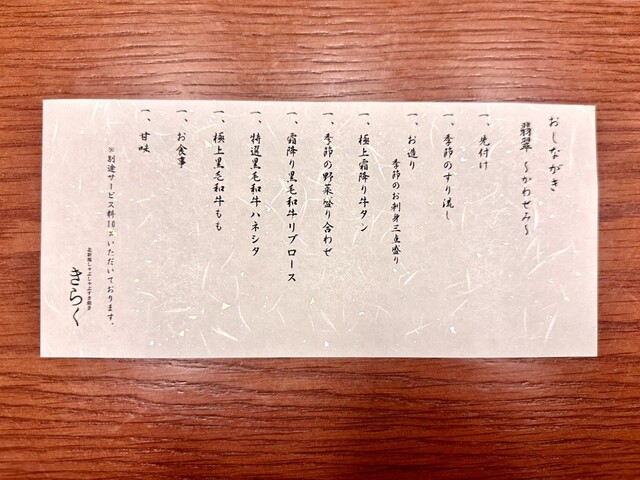 おしながき
翡翠 〜かわせみ〜
一、先付け
一、季節のすり流し
一、お造り
季節のお刺身三点盛り
一、極上霜降り牛タン
一、季節の野菜盛り合わせ
一、霜降り黒毛和牛リブロース
一、特選黒毛和牛ハネシタ
一、極上黒毛和牛もも
一、お食事
一、甘味
※別途サービス料10%いただいております。
北新地しゃぶしゃぶすき焼き
きらく